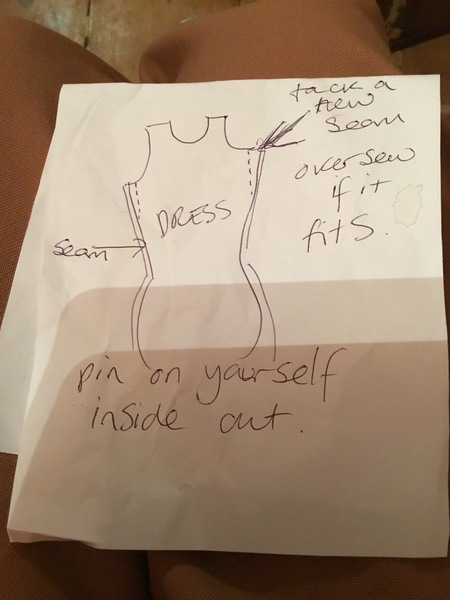 tack a
new
seam
oversew
if it
fits.
DRESS
seam
pin on yourself
inside out.